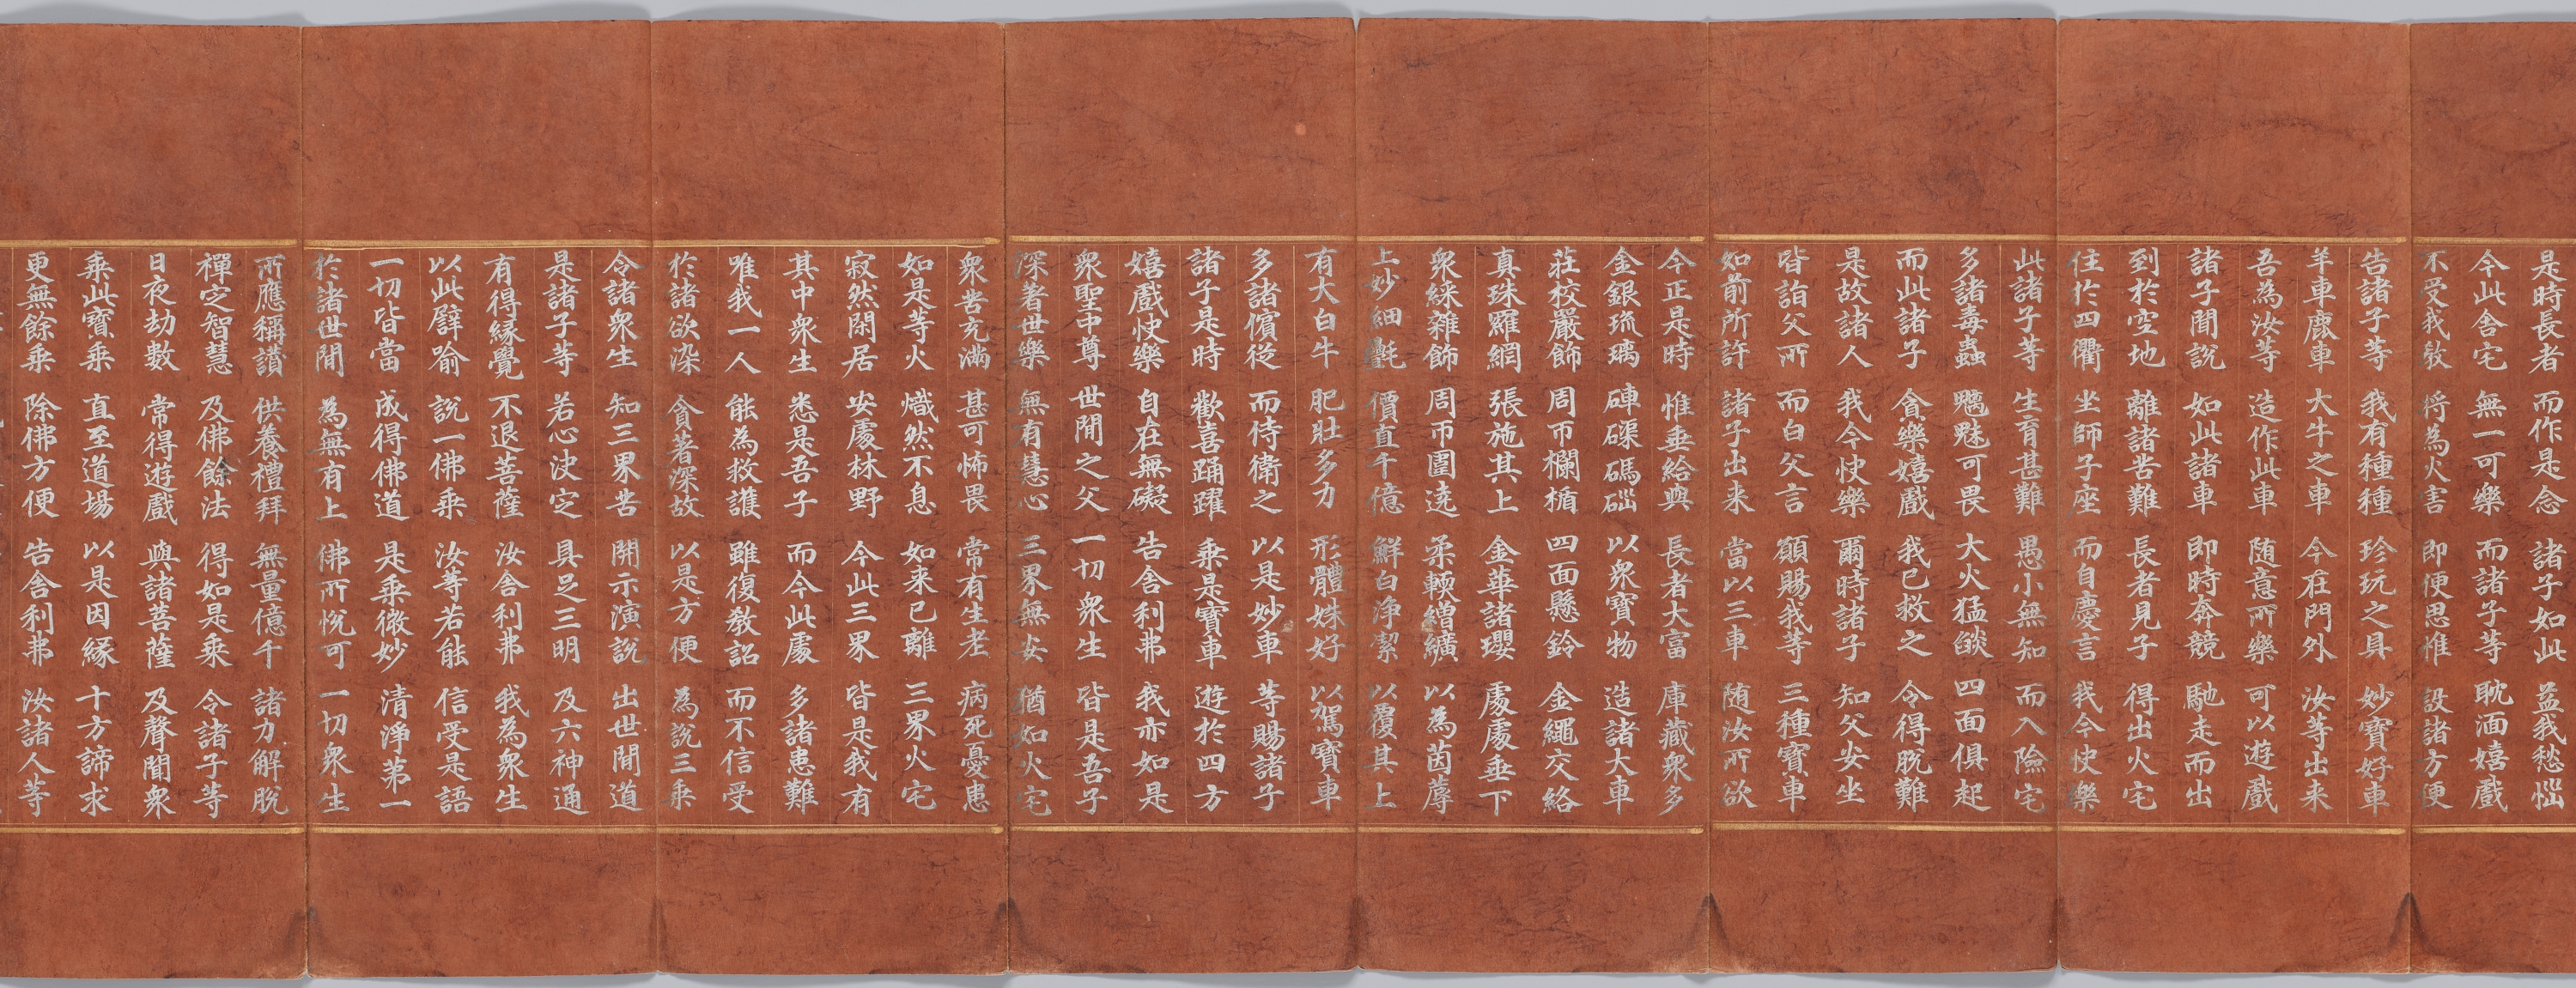 是時長者 而作是念 諸子如此 益我愁惱
今此舍宅 無一可樂 而諸子等 耽湎嬉戲
不受我敎 将為火害 即便思惟 設諸方便
告諸子等 我有種種 珍玩之具 妙寶好車
羊車鹿車 大牛之車 今在門外 汝等出来
吾為汝等 造作此車 随意所樂 可以遊戲
諸子聞說 如此諸車 即時奔競 馳走而出
到於空地 離諸苦難 長者見子 得出火宅
住於四衢 坐師子座 而自慶言 我今快樂
此諸子等 生育甚難 愚小無知 而入險宅
多諸毒蟲 魑魅可畏 大火猛燄 四面俱起
而此諸子 貪樂嬉戲 我已救之 令得脫難
是故諸人 我今快樂 爾時諸子 知父安坐
皆詣父所 而白父言 願賜我等 三種寶車
如前所許 諸子出来 當以三車 随汝所欲
今正是時 惟垂給與 長者大富 庫藏衆多
金銀琉璃 硨磲碼碯 以衆寶物 造諸大車
莊校嚴飾 周帀欄楯 四面懸鈴 金繩交絡
真珠羅網 張施其上 金華諸瓔 處處垂下
衆綵雜飾 周帀圍遶 柔輭繒纊 以為茵蓐
上妙細㲲 價直千億 鮮白淨潔 以覆其上
有大白牛 肥壯多力 形體姝好 以駕寶車
多諸儐從 而侍衛之 以是妙車 等賜諸子
諸子是時 歡喜踊躍 乘是寶車 遊於四方
嬉戲快樂 自在無礙 告舍利弗 我亦如是
衆聖中尊 世間之父 一切衆生 皆是吾子
深著世樂 無有慧心 三界無安 猶如火宅
衆苦充滿 甚可怖畏 常有生老 病死憂患
如是等火 熾然不息 如来已離 三界火宅
寂然閑居 安處林野 今此三界 皆是我有
其中衆生 悉是吾子 而今此處 多諸患難
唯我一人 能為救護 雖復敎詔 而不信受
於諸欲染 貪著深故 以是方便 為說三乘
令諸衆生 知三界苦 開示演說 出世間道
是諸子等 若心決定 具足三明 及六神通
有得緣覺 不退菩薩 汝舍利弗 我為衆生
以此譬喻 說一佛乘 汝等若能 信受是語
一切皆當 成得佛道 是乘微妙 清淨第一
於諸世間 為無有上 佛所悅可 一切衆生
所應稱讃 供養禮拜 無量億千 諸力解脫
禪定智慧 及佛餘法 得如是乘 令諸子等
日夜劫數 常得遊戲 與諸菩薩 及聲聞衆
乘此寶乘 直至道場 以是因緣 十方諦求
更無餘乘 除佛方便 告舍利弗 汝諸人等